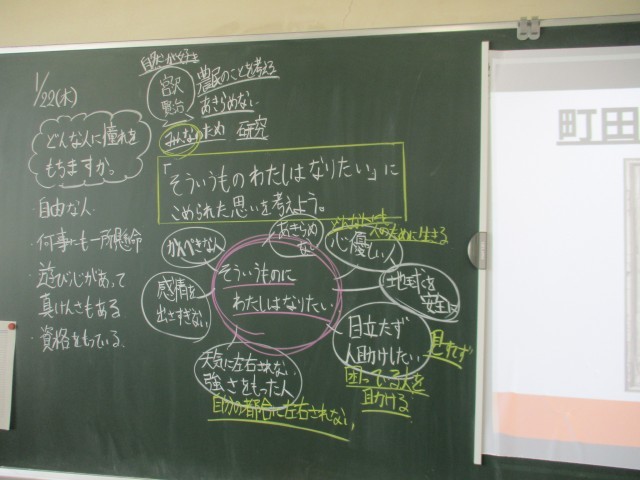 1/22(木)
どんな人に憧れを
もちますか。
・自由な人
・何事にも一所懸命
・遊び心があって
真けんさもある
・資格をもっている。
自然が好き
宮沢
賢治
農民のことを考える
あきらめない
みんなのため 研究
「そういうものわたしはなりたい」に
こめられた思いを考えよう。
そういうものに
わたしはなりたい
かんぺきな人
あきらめ
ない
心優しい人
人のために生きる
感情を
出さすぎない
地球を
安全に
目立たず
人助けしたい
見すてず
困っている人を
助ける
天気に左右されない
強さをもった人
自分の都合に左右されない
町田